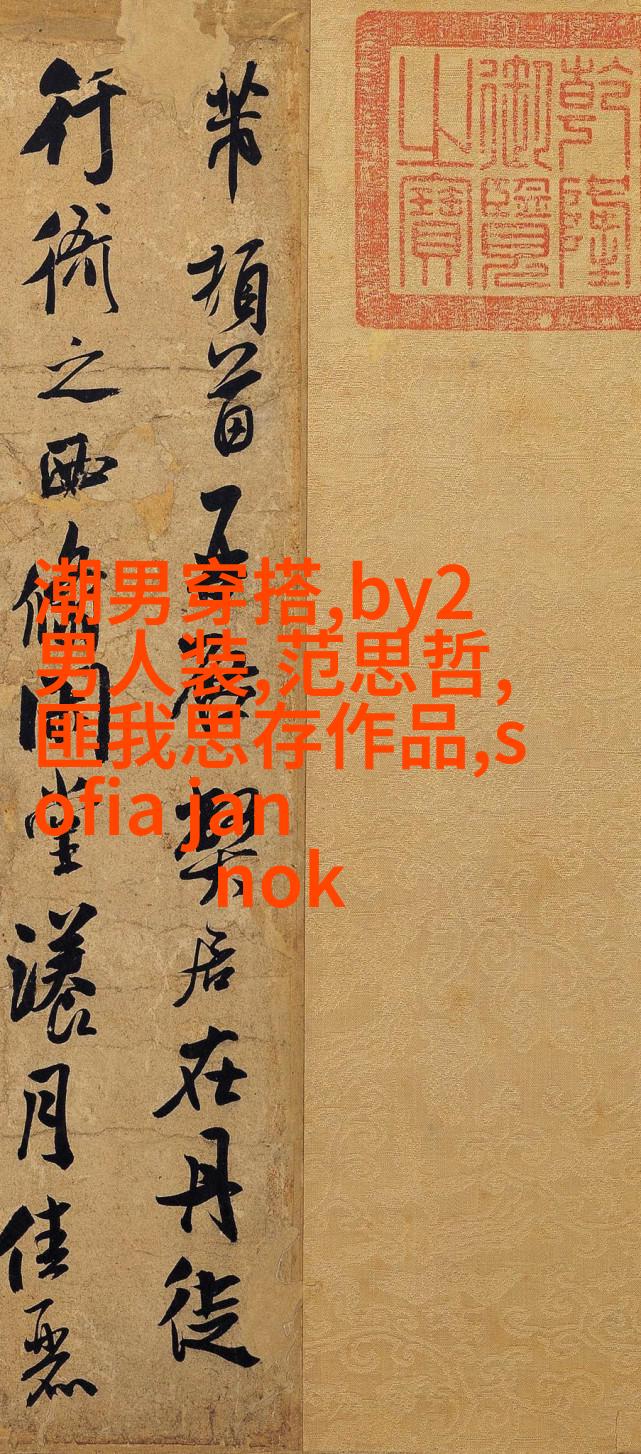 乾隆
御覽
之寶
芾頓首再啓弊居在丹徒
行衙之西翛閒堂漾月佳麗
潮男穿搭,by2
男人装,范思哲,
匪我思存作品,s
ofia jan
nok